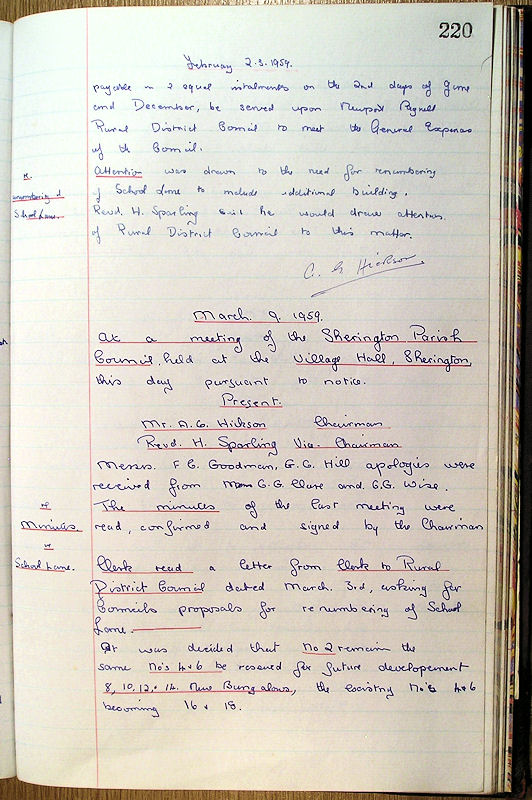 220
February 2.3.1959.
payable in 2 equal instalments on the 2nd days of June
and December, be served upon Newport Pagnell
Rural District Council to meet the General Expenses
of the Council.
Attention was drawn to the need for renumbering
of School Lane to include additional building.
Revd. H. Sparling said he would draw attention
of Rural District Council to this matter.
re.
renumbering of
School Lane.
C. G Hickson.
March. 9. 1959.
At a meeting of the Sherington Parish
Council, held at the Village Hall, Sherington,
this day pursuant to notice.
Present.
Mr. A.G. Hickson Chairman
Revd. H. Sparling Vice. Chairman
Messrs. F C. Goodman, G.G. Hill apologies were
received from G.G. Clare and G.G. Wise.
The minutes of the last meeting were
read, confirmed and signed by the Chairman
re
Minutes
re
School Lane.
Clerk read a letter from Clerk to Rural
District Council dated March. 3rd, asking for
Councils proposals for renumbering of School
Lane.
It was decided that No 2 remain the
same No's 4 & 6 be reserved for future developement
8, 10, 12, & 14. New Bungalows, the existing No's 4 & 6
becoming 16 & 18.